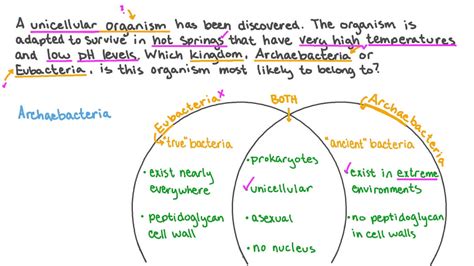 ?
A unicellular organism has been discovered. The organism is
adapted to survive in hot springs that have very high temperatures
and low pH levels. Which kingdom, Archaebacteria or
Eubacteria, is this organism most likely to belong to?
Archaebacteria
Eubacteria x
BOTH
Archaebacteria
"true" bacteria
"ancient" bacteria
• exist nearly
everywhere
• peptidoglycan
cell wall
• prokaryotes
• unicellular
• asexual
• no nucleus
• exist in extreme
environments
• no peptidoglycan
in cell walls